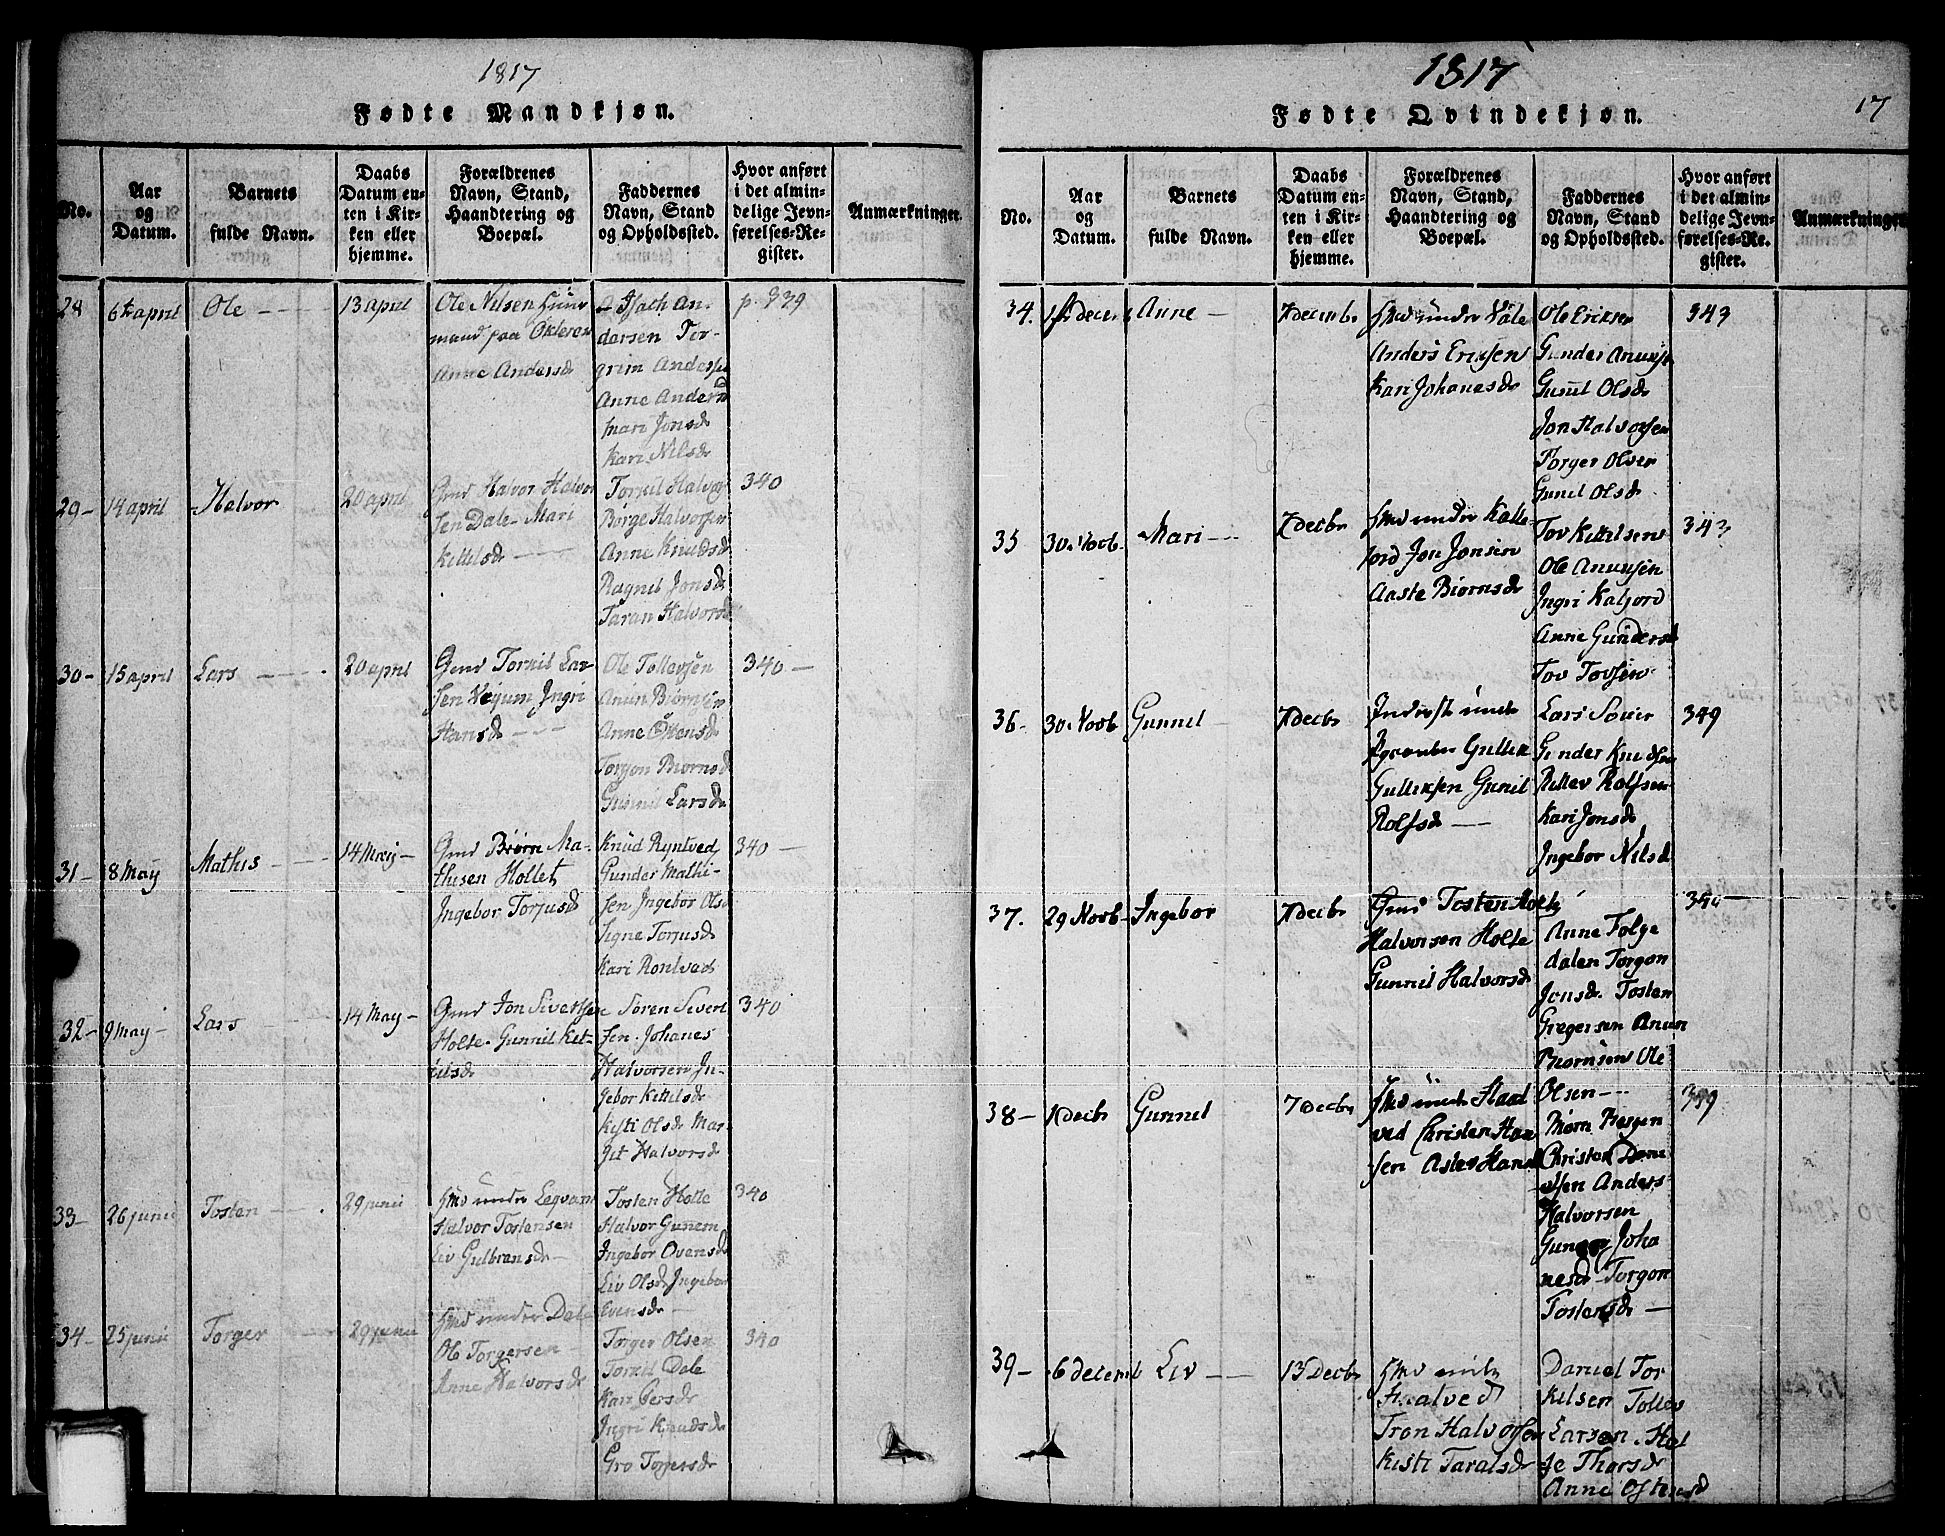 1817
Fødte Mandkjøn.
No.
Aar
og
Datum.
Barnets
fulde Navn.
Daabs
Datum en-
ten i Kir-
ken eller
hjemme.
Forældrenes
Navn, Stand,
Haandtering og
Boepæl.
Faddernes
Navn, Stand
og Opholdssted.
Hvor anført
i det almin-
delige Jevn-
førelses-Re-
gister.
Anmærkninger.
28
6te april
Ole
13 april
Ole Nilsen
mand paa
Anne Andersd
Isach An-
dersen Tor-
grim Anders
Anne Andersd
Mari Jonsd
Kari Nilsd
p. 339
29-
14 april
Halvor
20 april
Gmd Halvor Halvor
sen Dale- Mari
Kittilsd
Torkil Halvor
Børge Halvorsen
Anne Knudsd
Ragnil Jonsd
Taran Halvorsd
340
30-
15 april
Lars
20 april
Gmd Torkil Lar
sen Ingri
Hansd
Ole Tollevsen
Anun Biørnsen
Anne Ostensd
Torgon Biornsd
Gunnil Larsd
340 -
31-
8 May
Mathis
14 May-
Gmd Biørn Ma-
thisen Holtet
Ingebor Torjusd
Knud Ryntved
Gunder Mathi-
sen Ingebor Ols
Signe Torjusd
Kari Rontved
340-
32-
9 may-
Lars
14 May-
Gmd Jon Sivertsen
Holte- Gunnil Ket-
tilsd
Søren Sivert
sen. Johanes
Halvorsen In-
gebor Kittilsd
Kisti Olsd Mar-
git Halvorsd
340
33-
26 junii
Tosten
29 junii
Hmd under
Halvor Tostensen
Liv Gulbransd
Tosten Holte
Halvor Gunem
Ingebor Ovensd
Liv Olsd Ingebor
Evensd
340
34-
25 junii
Torger
29 junii
Hmd under Dale
Ole Torgersen
Anne Halvorsd
Torger Olsen
Torkil Dale
Kari Persd
Ingri Knudsd
Gro Torgersd
340
1817
17
Fødte Qvindekjøn.
No.
Aar
og
Datum.
Barnets
fulde Navn.
Daabs
Datum en-
ten i Kir-
ken eller
hjemme.
Forældrenes
Navn, Stand,
Haandtering og
Boepæl.
Faddernes
Navn, Stand
og Opholdssted.
Hvor anført
i det almin-
delige Jevn-
førelses-Re-
gister.
Anmærkninger
34.
Anne
7 Decmbr
Hmd under
Anders Ericksen
Kari Johanesd
Ole Ericksen
Gunder Anunsen
Gunil Olsd
Jon Halvorsen
Torger Olsen
Gunil Olsd
343
35
30. Novb.
Mari
7 Decbr
Hmd under
Jon Jonsen
Aaste Biørnsd
Tov Kittilsen
Ole Anunsen
Ingri Kaljord
Anne Gundersd
Tov Tovsen
343
36-
30. Novb
Gunnil
7 Decbr
Gullik
Gulliksen Gunil
Rolfsd
Lars
Gunder Knudsen
Rolfsen
Kari Jonsd
Ingebor Nilsd
37.
29 Novb-
Ingebor
7 Decbr
Gmd Tosten
Halvorsen Holte
Gunnil Halvorsd
Anne Folge
dalen Torgon
Jonsd. Tosten
Gregersen Anun
Biørnsen Ole
Olsen-
340-
38-
1 Decbr
Gunnil
7 Decbr
Hmd under
ved Christen Han
sen Aste Hansd
Biørn
Christen
Anders
Halvorsen
Joha
nesd Torgon
Tostensd
39-
6 decemb
Liv
13 Decbr
Hmd under
Tron Halvorsen
Kisti Taralsd
Daniel Tor
kilsen Tollev
Larsen. Hel
je Thorsd
Anne Ostensd